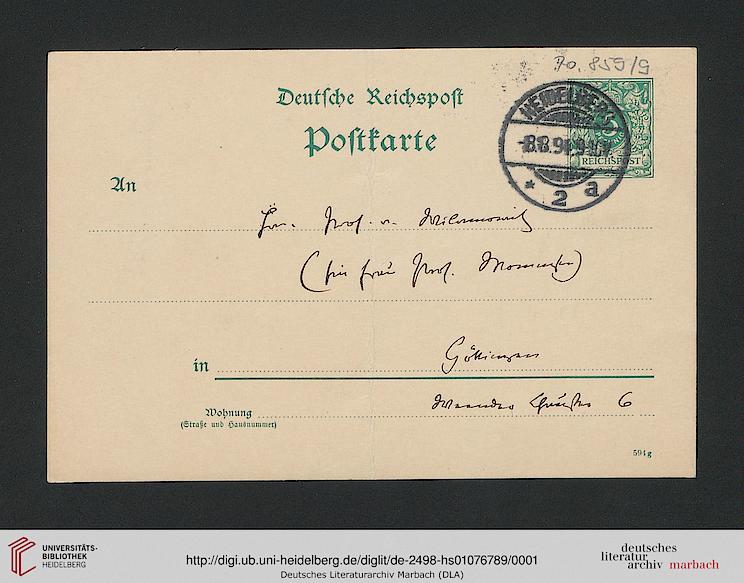 Deutsche Reichspost
Postkarte
An
Prof. v. Wilamowitz
(für Frau Prof. Mommsen)
in Göttingen
Wohnung
(Straße und Hausnummer)
Weender 6
594g
HEIDELBERG
2 a
REICHSPOST
UNIVERSITÄTS-
BIBLIOTHEK
HEIDELBERG
http://digi.ub.uni-heidelberg.de/diglit/de-2498-hs01076789/0001
Deutsches Literaturarchiv Marbach (DLA)
deutsches
literatur
archiv marbach